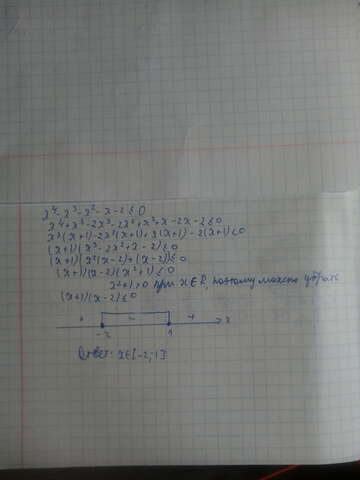 x⁴-x³-x²-x-2≤0
x⁴+x³-2x³-2x²+x²+x-2x-2≤0
x³(x+1)-2x²(x+1)+x(x+1)-2(x+1)≤0
(x+1)(x³-2x²+x-2)≤0
(x+1)(x²(x-2)+(x-2))≤0
(x+1)(x-2)(x²+1)≤0
x²+1>0 при x∈R, поэтому можно убрать
(x+1)(x-2)≤0
+ - + x
-2 1
Ответ: x∈[-2;1]